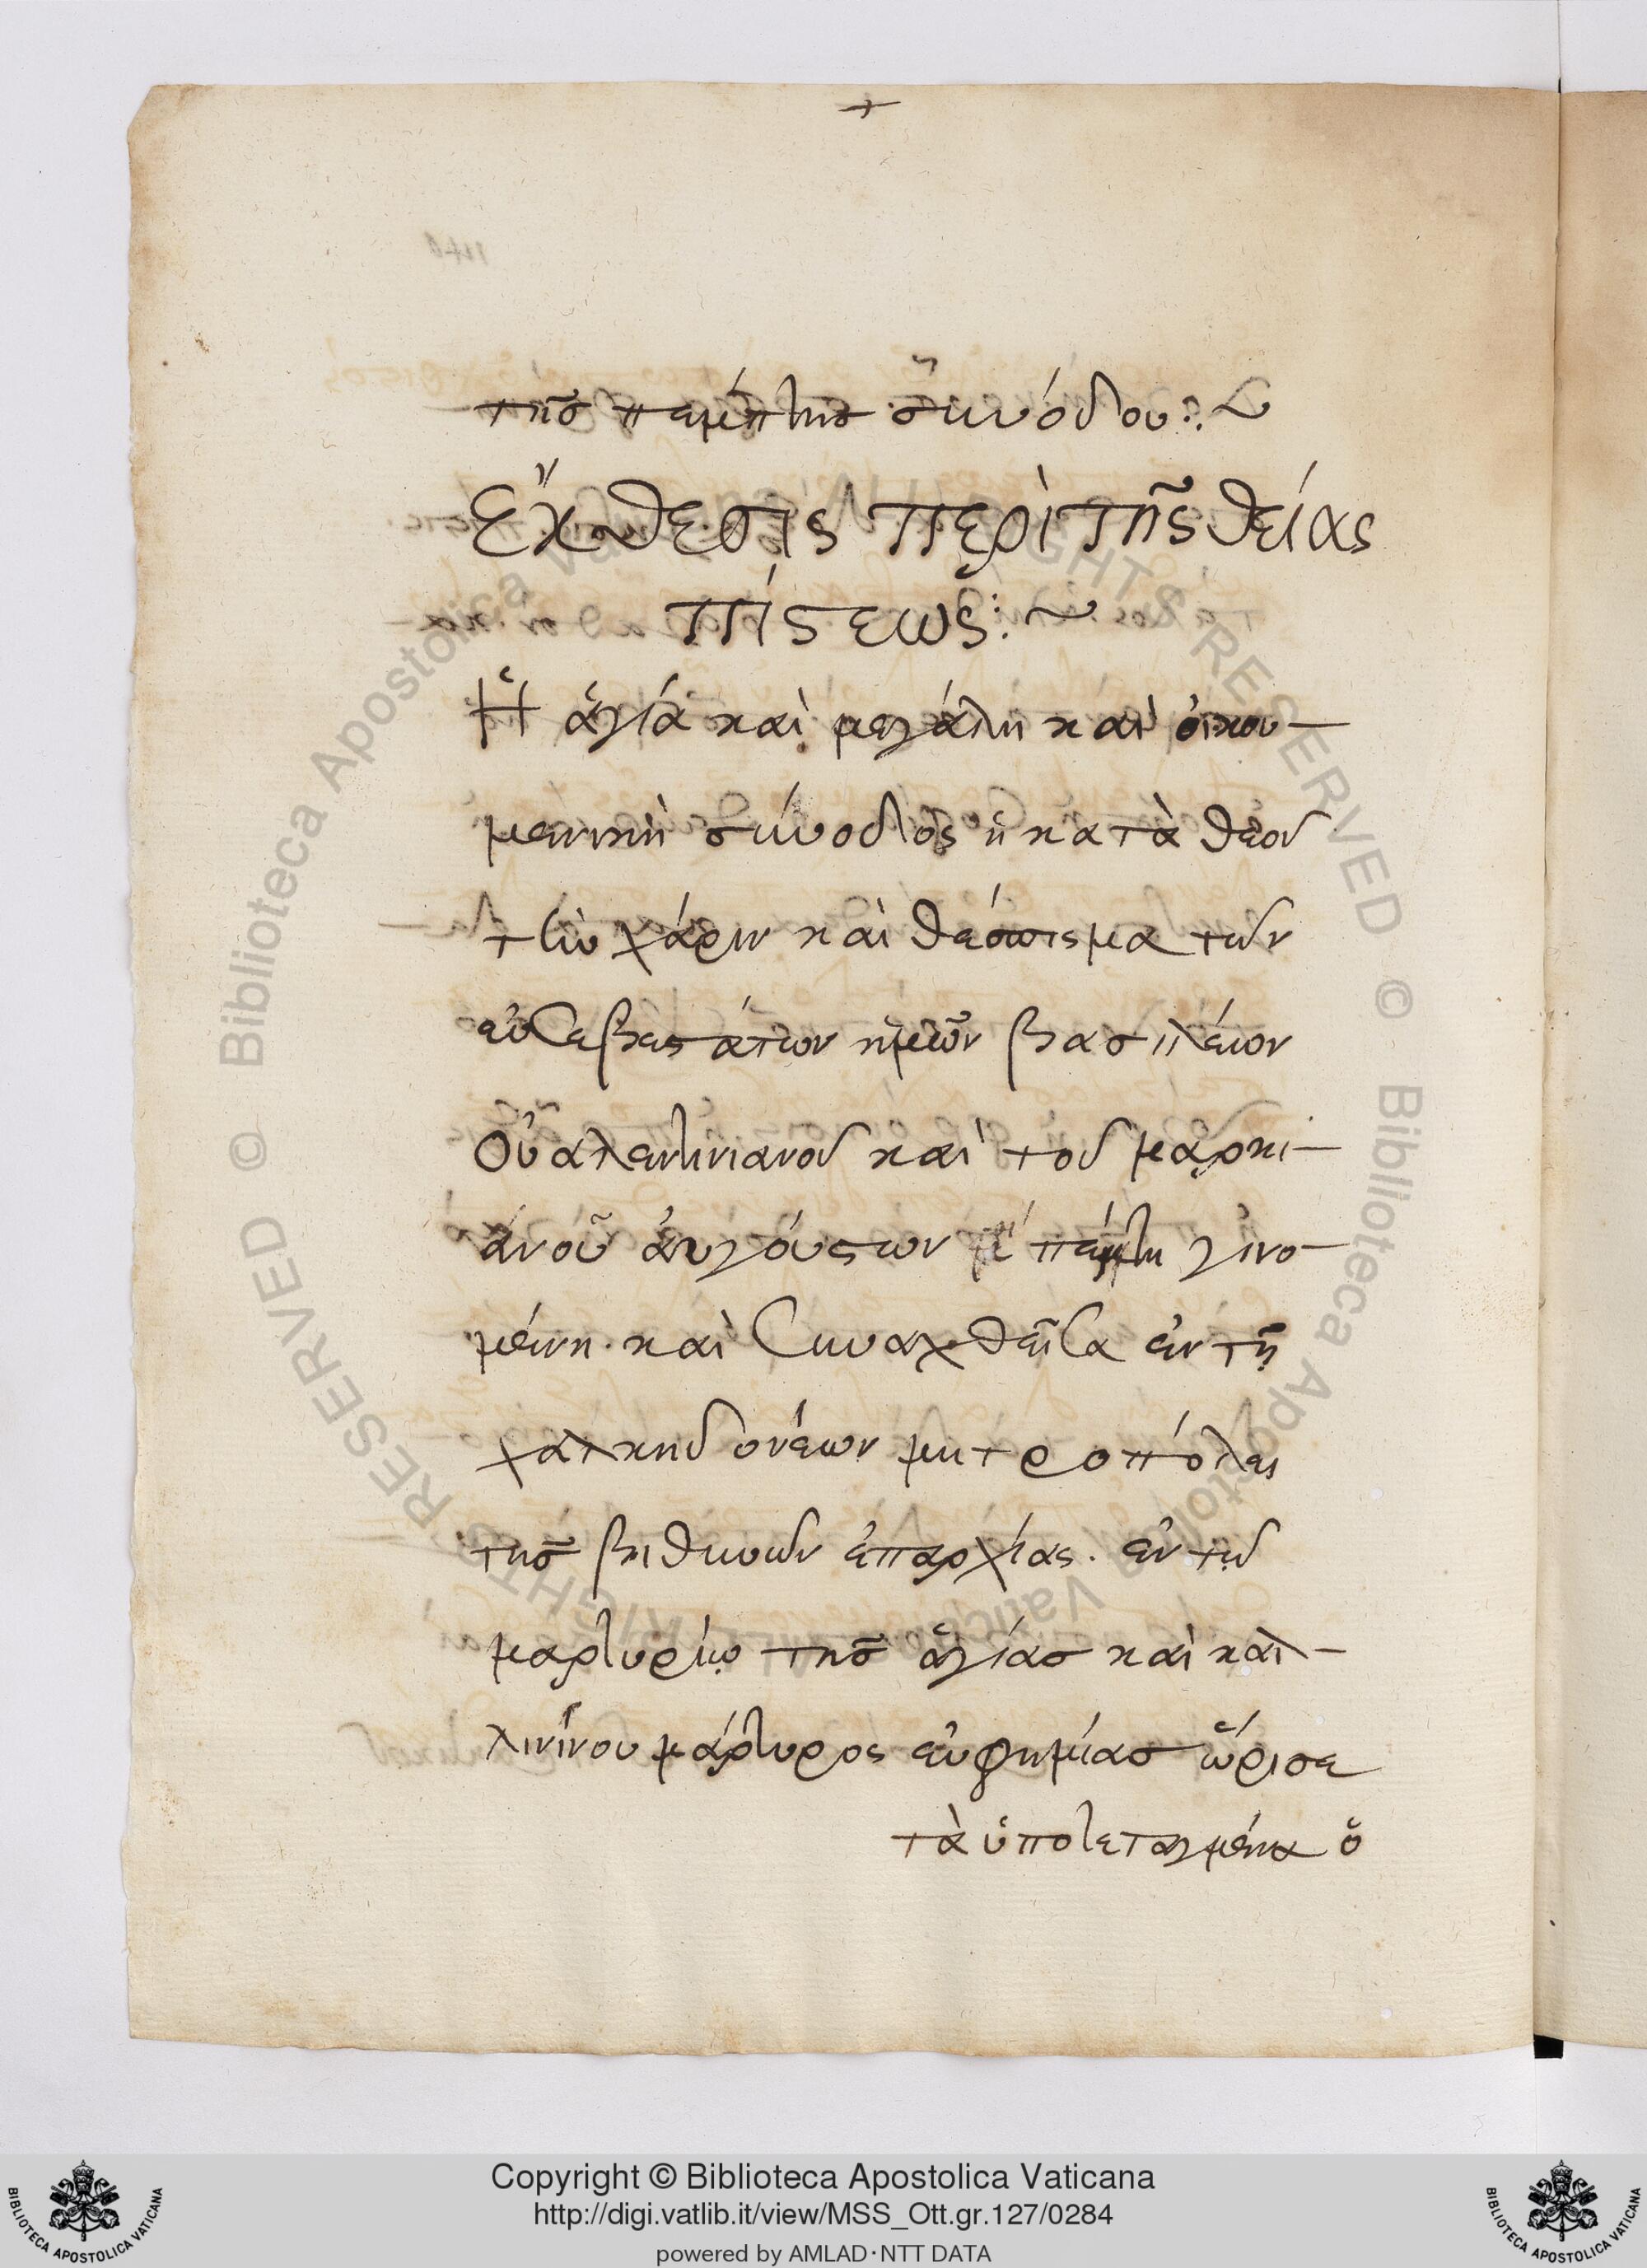 +
τῆς πεμπτης συνόδου :~
Ἔκθεσις περὶ τῆς θείας
πίστεως :~
Ἡ ἁγία καὶ μεγάλη καὶ οἰκου-
μενικὴ σύνοδος ἡ κατὰ θεοῦ
τὴν χάριν καὶ θέσπισμα τῶν
εὐσεβεστάτων ἡμῶν βασιλέων
Οὐαλεντινιανοῦ καὶ τοῦ μαρκι-
άνοῦ ἀυγούστων πέμπτη γινο-
μένη. καὶ συναχθεῖσα ἐν τῇ
χαλκηδονέων μητροπόλει
τῆς βιθυνῶν ἐπαρχίας. ἐν τῷ
μαρτυρίῳ τῆς ἁγίας καὶ καλ-
λινίκου μάρτυρος εὐφημίας ὥρισε
τὰ ὑποτεταγμένα ὁ
Copyright © Biblioteca Apostolica Vaticana
http://digi.vatlib.it/view/MSS_Ott.gr.127/0284
powered by AMLAD·NTT DATA
BIBLIOTECA APOSTOLICA VATICANA
BIBLIOTECA APOSTOLICA VATICANA
© Biblioteca Apostolica Vaticana ALL RIGHTS RESERVED
© Biblioteca Apostolica Vaticana ALL RIGHTS RESERVED